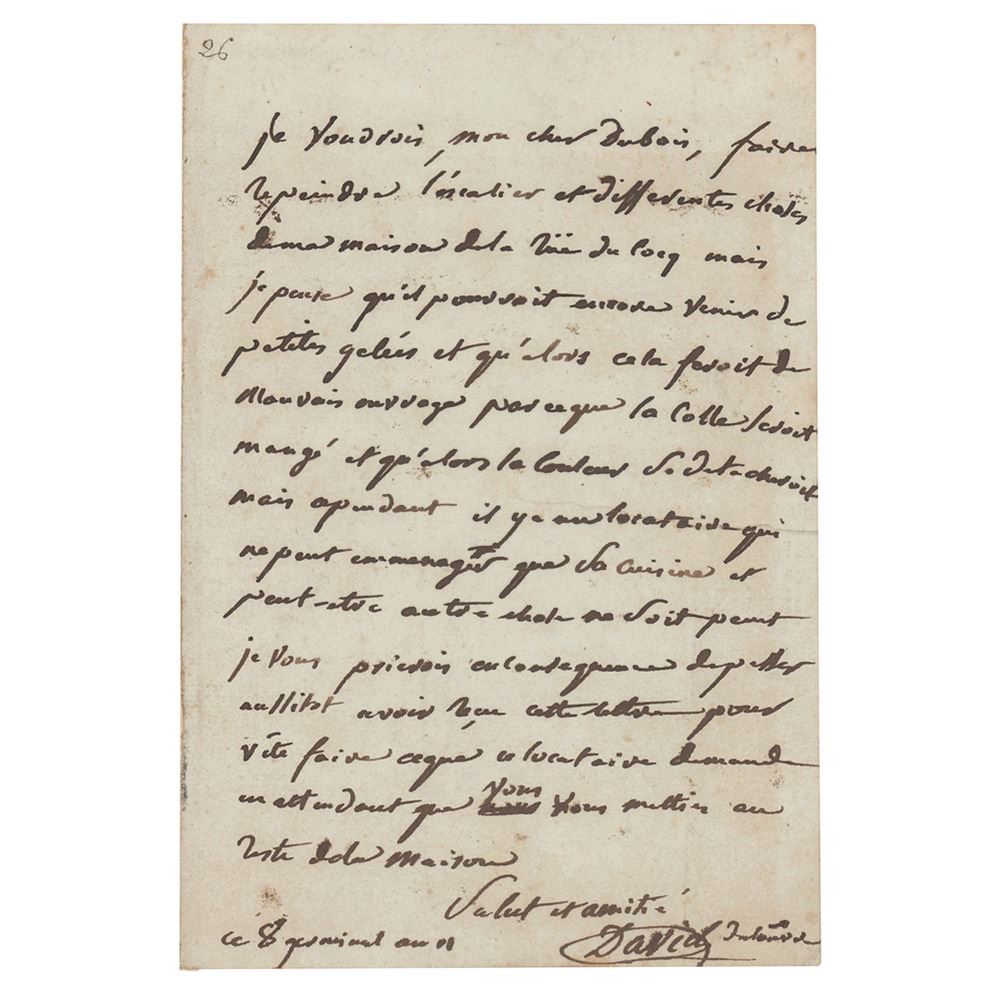 26
je voudrois, mon cher Dubois, faire
repeindre l'escalier et differentes choses
de ma maison de la rüe du Cocq mais
je pense qu'il pourroit encore venir de
petites gelées et qu'alors cela feroit de
mauvais ouvrage parceque la colle seroit
mangé et qu'alors la couleur se détacheroit
mais cependant il y a un locataire qui
ne peut emmenager que sa cuisine et
peut-etre autre chose ne soit peint
je vous prierois en consequence de passer
aussitot avoir reçue cette lettre pour
vite faire ceque ce locataire demande
en attendant que vous vous mettiez au
reste de la maison
Salut et amitié
ce 8 germinal an 11 David du louvre